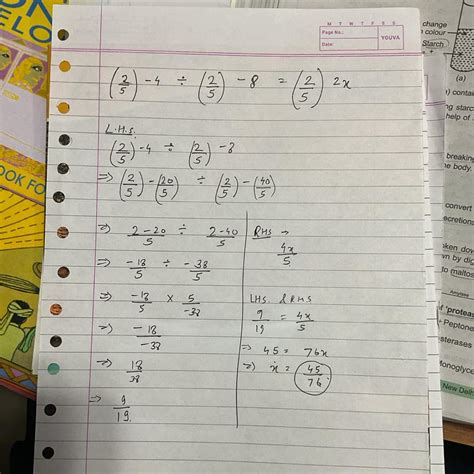 M T W T F S S
Page No.:
Date:
YOUVA
(2/5) - 4 ÷ (2/5) - 8 = (2/5) 2x
L.H.S.
(2/5) - 4 ÷ (2/5) - 8
⇒ (2/5) - (20/5) ÷ (2/5) - (40/5)
⇒ 2-20/5 ÷ 2-40/5
⇒ -18/5 ÷ -38/5
⇒ -18/5 × 5/-38
⇒ -18/-38
⇒ 18/38
⇒ 9/19
RHS →
4x/5
LHS. & RHS
9/19 = 4x/5
⇒ 45 = 76x
⇒ x = 45/76
change
colour
Starch
(a)
) contai
ng starc
help of
breaking
e body.
convert
ecretions
oken dow
wn by dig
to maltos
of 'proteas
Peptone
sterases
Monoglyce
New Delh
OOK FOR